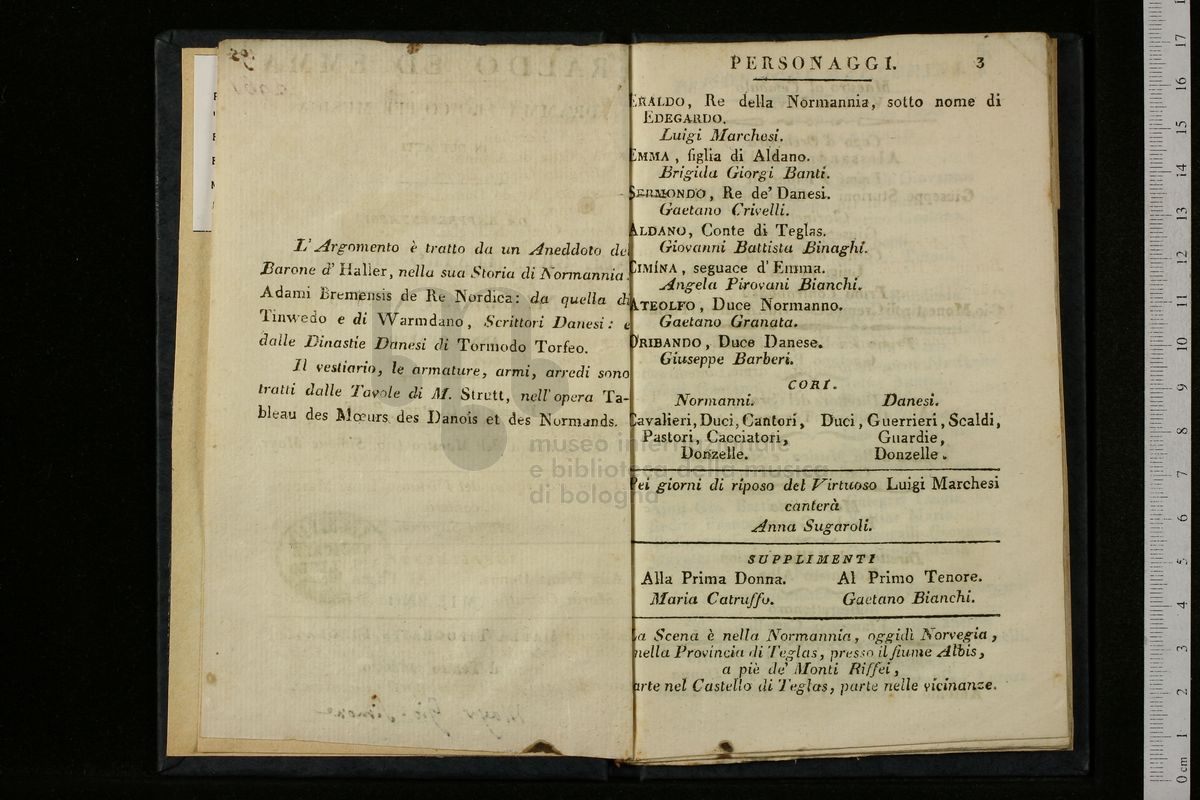 L' Argomento è tratto da un Aneddoto del
Barone d' Haller, nella sua Storia di Normannia.
Adami Bremensis de Re Nordica: da quella di
Tinwedo e di Warmdano, Scrittori Danesi: e
dalle Dinastie Danesi di Tormodo Torfeo.
Il vestiario, le armature, armi, arredi sono
tratti dalle Tavole di M. Strutt, nell' opera Ta-
bleau des Mœurs des Danois et des Normands.
PERSONAGGI. 3
ERALDO, Re della Normannia, sotto nome di
EDEGARDO.
Luigi Marchesi.
EMMA, figlia di Aldano.
Brigida Giorgi Banti.
SERMONDO, Re de' Danesi.
Gaetano Crivelli.
ALDANO, Conte di Teglas.
Giovanni Battista Binaghi.
CIMINA, seguace d' Emma.
Angela Pirovani Bianchi.
ATEOLFO, Duce Normanno.
Gaetano Granata.
ORIBANDO, Duce Danese.
Giuseppe Barberi.
CORI.
Normanni. Danesi.
Cavalieri, Duci, Cantori, Duci, Guerrieri, Scaldi,
Pastori, Cacciatori, Guardie,
Donzelle. Donzelle.
Nei giorni di riposo del Virtuoso Luigi Marchesi
canterà
Anna Sugaroli.
SUPPLIMENTI
Alla Prima Donna. Al Primo Tenore.
Maria Catruffo. Gaetano Bianchi.
La Scena è nella Normannia, oggidì Norvegia,
nella Provincia di Teglas, presso il fiume Albis,
a piè de' Monti Riffei,
arte nel Castello di Teglas, parte nelle vicinanze.
museo internazionale
e biblioteca della musica
di bologna
0 cm 1 2 3 4 5 6 7 8 9 10 11 12 13 14 15 16 17